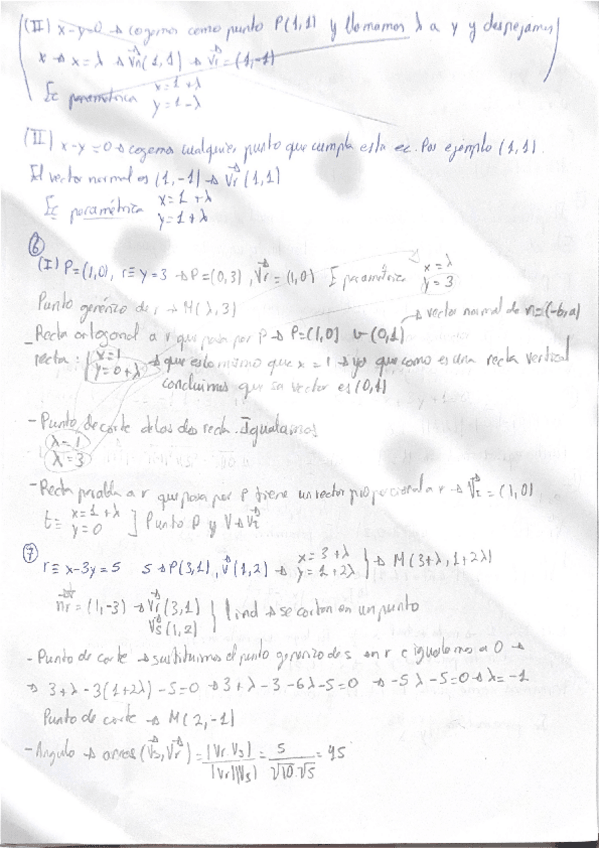 (II) x-y=0 → cogemos como punto P(1,1) y llamamos λ a y y despejamos
x → x=λ → Vn(1,1) → Vr=(1,-1)
Ec paramétrica x=1+λ
y=1-λ
(II) x-y=0 → cogemos cualquier punto que cumpla esta ec. Por ejemplo (1,1).
El vector normal es (1,-1) → Vr(1,1)
Ec paramétrica x=1+λ
y=1+λ
6
(I) P=(1,0), r≡y=3 → P=(0,3), Vr=(1,0) E paramétrica x=λ
y=3
Punto genérizo de r → M(λ,3)
→ vector normal de n=(-b,a)
- Recta ortogonal a r que pasa por P → P=(1,0) v(0,1)
recta: x=1
y=0+λ → que es lo mismo que x=1 → ya que como es una recta vertical
concluimos que su vector es (0,1)
- Punto de corte de las dos rect. Igualamos
λ=1
λ=3
- Recta paralela a r que pasa por P tiene un vector proporcional a r → Vt=(1,0)
t≡ x=1+λ
y=0 ] Punto P y V→Vt
7
r≡x-3y=5 s→P(3,1), v(1,2) → x=3+λ
y=1+2λ } → M(3+λ,1+2λ)
nr=(1,-3) → Vr(3,1)
Vs(1,2) } lind → se cortan en un punto
- Punto de corte → sustituimos el punto generizo de s en r e igualamos a 0 →
→ 3+λ-3(1+2λ)-5=0 → 3+λ-3-6λ-5=0 → -5λ-5=0 → λ=-1
Punto de corte → M(2,-1)
- Angulo → arcos(Vs,Vr)=|Vr·Vs|/|Vr||Vs|=5/√10·√5=45